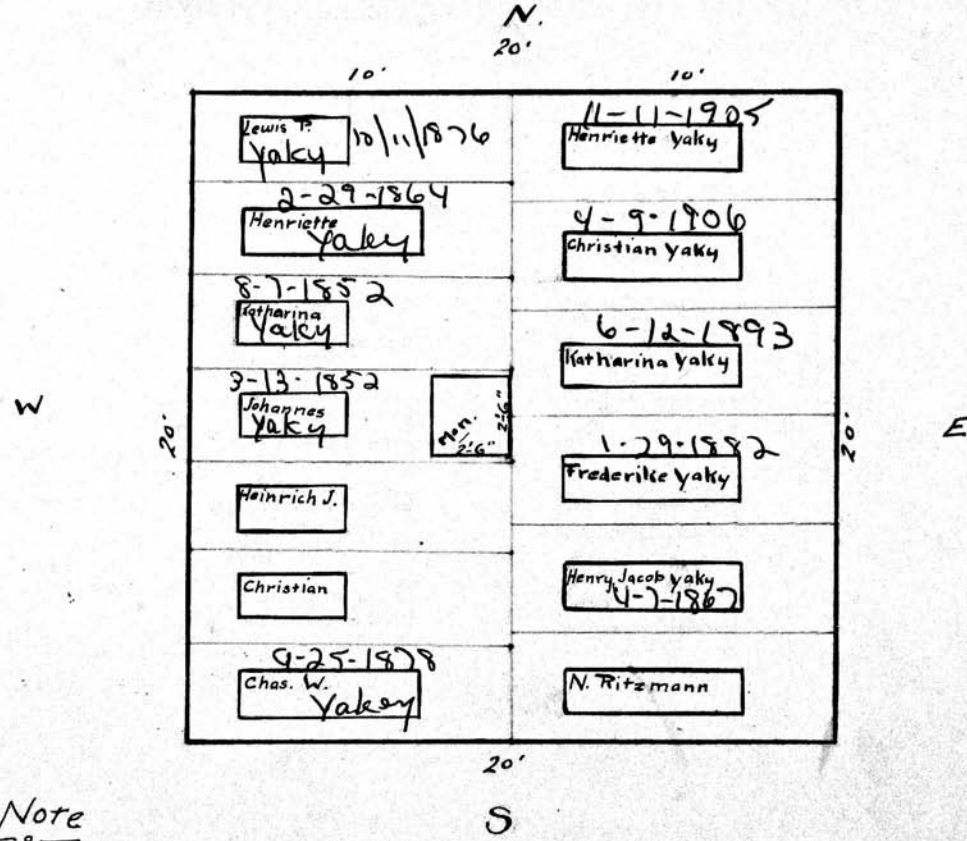 N.
20'
10'
10'
Lewis P.
Yaky
10/11/1876
2-29-1864
Henriette
Yaky
8-7-1852
Katharina
Yaky
3-13-1852
Johannes
Yaky
Heinrich J.
Christian
9-25-1878
Chas. W.
Yakey
Mon.
2'-6"
2'-6"
11-11-1905
Henriette Yaky
4-9-1906
Christian Yaky
6-12-1893
Katharina Yaky
1-29-1882
Frederike Yaky
Henry Jacob Yaky
4-7-1867
N. Ritzmann
W
20'
20'
E
20'
S
Note